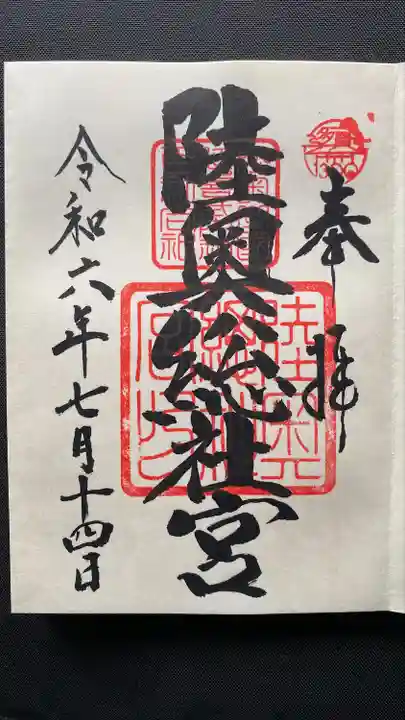 奉拝
陸奥総社宮
令和六年七月十四日